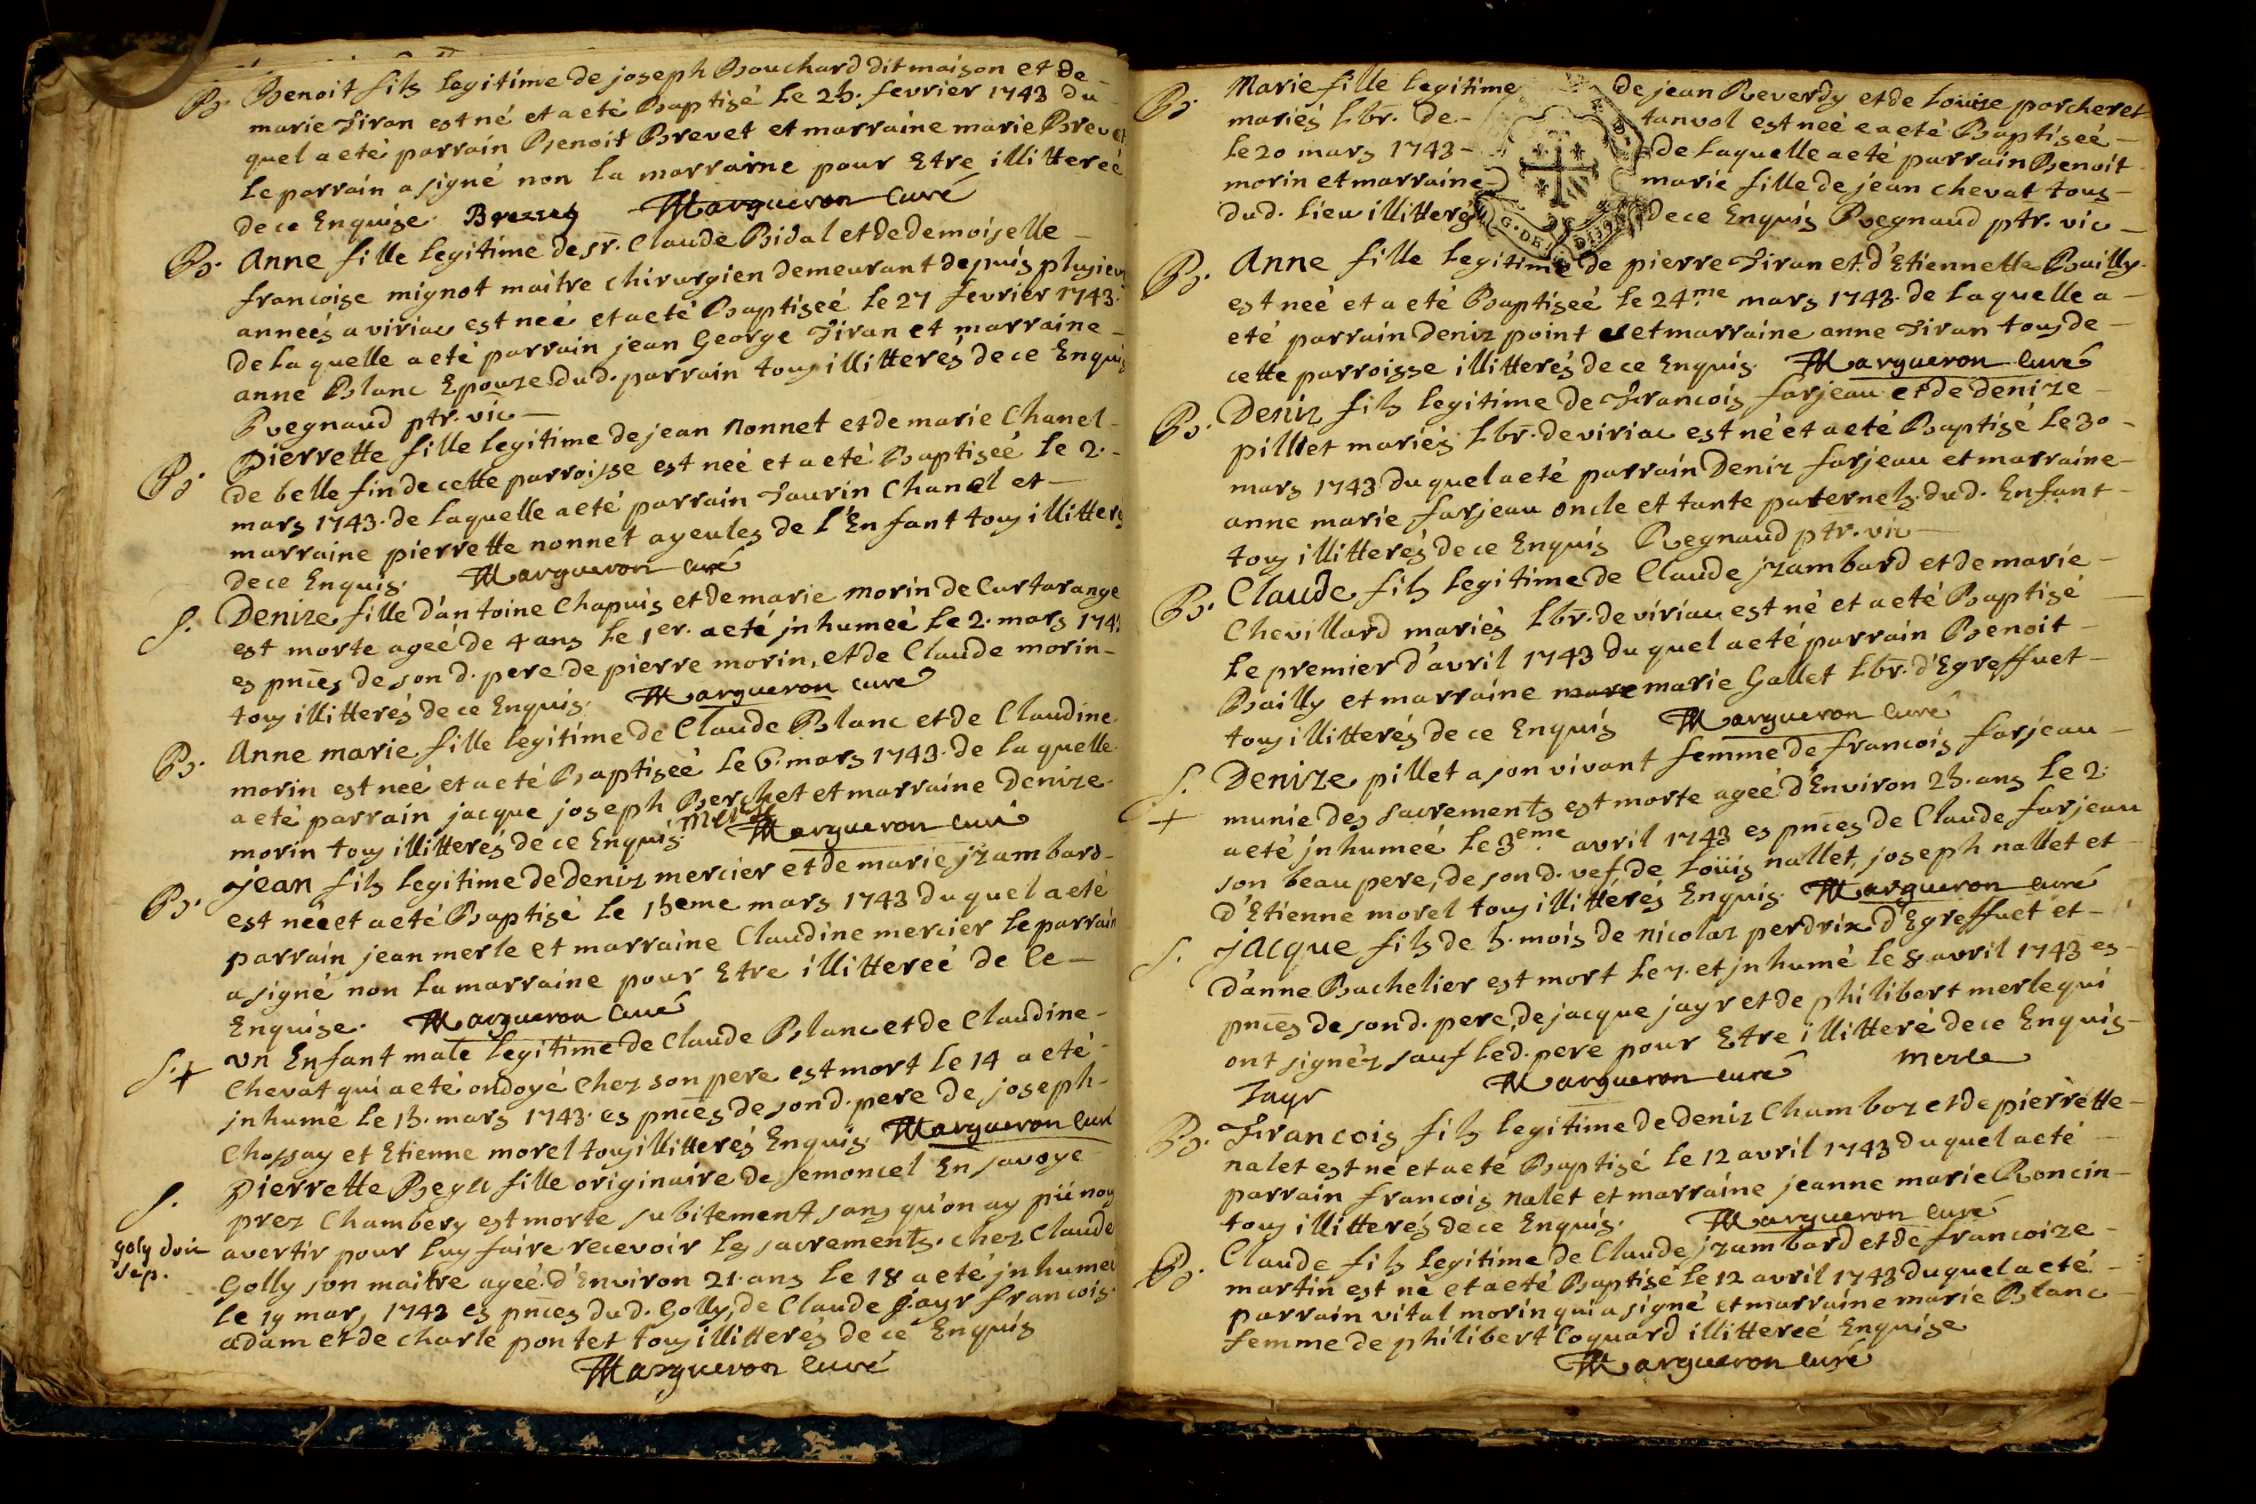 B. Benoit fils legitime de joseph Bouchard dit maison et de
marie Tiran est né et a eté Baptisé le 25. fevrier 1743 du
quel a eté parrain Benoit Brevet et marraine marie Brevet
le parrain a signé non la marraine pour Etre illitereé
de ce Enquise. Brevet Margueron Curé
B. Anne fille legitime de sr. Claude Bidal et de demoiselle
francoise mignot maitre chirurgien demeurant depuis plusieurs
anneés a viriac est neé et a eté Baptiseé le 27 fevrier 1743.
de laquelle a eté parrain jean George Tiran et marraine
anne Blanc Epouze dud. parrain tous illitterés de ce Enquis
Regnaud ptr. vic
B. Pierrette fille legitime de jean nonnet et de marie Chanel
de belle fin de cette parroisse est neé et a eté Baptiseé le 2.
mars 1743. de laquelle a eté parrain Taurin Chanel et
marraine pierrette nonnet ayeules de l'Enfant tous illitterés
de ce Enquis. Margueron curé
S. Denize fille d'antoine Chapuis et de marie morin de Curtarange
est morte ageé de 4 ans le 1er. a eté jnhumeé le 2. mars 1743
es pnces de son d. pere de pierre morin, et de Claude morin
tous illitterés de ce Enquis. Margueron curé
B. Anne marie fille legitime de Claude Blanc et de Claudine
morin est neé et a eté Baptiseé le 6. mars 1743. de laquelle
a eté parrain jacque joseph Berchet et marraine Denize
morin tous illitterés de ce Enquis. Margueron curé
B. Jean fils legitime de deniz mercier et de marie jzambard
est né et a eté Baptisé le 15eme mars 1743 du quel a eté
parrain jean merle et marraine Claudine mercier le parrain
a signé non la marraine pour Etre illittereé de ce
Enquise. Margueron Curé
S. + Un Enfant male legitime de Claude Blanc et de Claudine
Chevat qui a eté ondoyé chez son pere est mort le 14 a eté
jnhumé le 15. mars 1743. es pnces de son d. pere de joseph
Chossay et Etienne morel tous illitterés Enquis Margueron curé
S. Pierrette fille originaire de semoncel En savoye
prez Chambery est morte subitement sans qu'on ay pû nous
goly doit avertir pour luy faire recevoir les sacrements. chez Claude
sep. Golly son maitre ageé d'Environ 21. ans le 18 a eté jnhumeé
le 19 mars 1743 es pnces dud. Golly, de Claude jayr francois
adam et de charle pontet tous illitterés de ce Enquis
Margueron Curé
B. Marie fille legitime de jean Reverdy et de Louise porcheret
mariés lbr. de tanvol est neé e a eté Baptiseé
le 20 mars 1743 de laquelle a eté parrain Benoit
morin et marraine marie fille de jean chevat tous
dud. lieu illitterés de ce Enquis Regnaud ptr. vic
G. DE DIJON
B. Anne fille legitime de pierre Tiran et d'Etiennette Bailly
est neé et a eté Baptiseé le 24me mars 1743. de laquelle a
eté parrain deniz point et marraine anne Tiran tous de
cette parroisse illitterés de ce Enquis. Margueron curé
B. Deniz fils legitime de Francois farjeau et de denize
pillet mariés lbr. de viriac est né et a eté Baptisé le 30
mars 1743 du quel a eté parrain Deniz farjeau et marraine
anne marie farjeau oncle et tante paternels dud. Enfant
tous illitterés de ce Enquis Regnaud ptr. vic
B. Claude fils legitime de Claude jzambard et de marie
Chevillard mariés lbr. de viriac est né et a eté Baptisé
le premier d'avril 1743 du quel a eté parrain Benoit
Bailly et marraine marie Gallet lbr. d'Egreffuet
tous illitterés de ce Enquis Margueron Curé
S. Denize pillet a son vivant femme de francois farjeau
+ munie des sacrements est morte ageé d'Environ 25. ans le 2.
a eté jnhumeé le 3eme avril 1743 es pnces de Claude farjeau
son beau pere, de son d. vef. de Loüis nallet, joseph nallet et
d'Etienne morel tous illitterés Enquis. Margueron curé
S. Jacque fils de 5. mois de nicolaz perdrix d'Egreffuet et
d'anne Bachelier est mort le 7. et jnhumé le 8 avril 1743 es
pnces de son d. pere, de jacque jayr et de philibert merle qui
ont signéz sauf led. pere pour Etre illitteré de ce Enquis
Jayr Margueron curé merle
B. Francois fils legitime de deniz Chamboz et de pierrette
nalet est né et a eté Baptisé le 12 avril 1743 duquel a eté
parrain francois nalet et marraine jeanne marie Roncin
tous illitterés de ce Enquis. Margueron curé
B. Claude fils legitime de Claude jzambard et de francoize
martin est né et a eté Baptisé le 12 avril 1743 duquel a eté
parrain vital morin qui a signé et marraine marie Blanc
femme de philibert Coquard illittereé Enquise
Margueron Curé